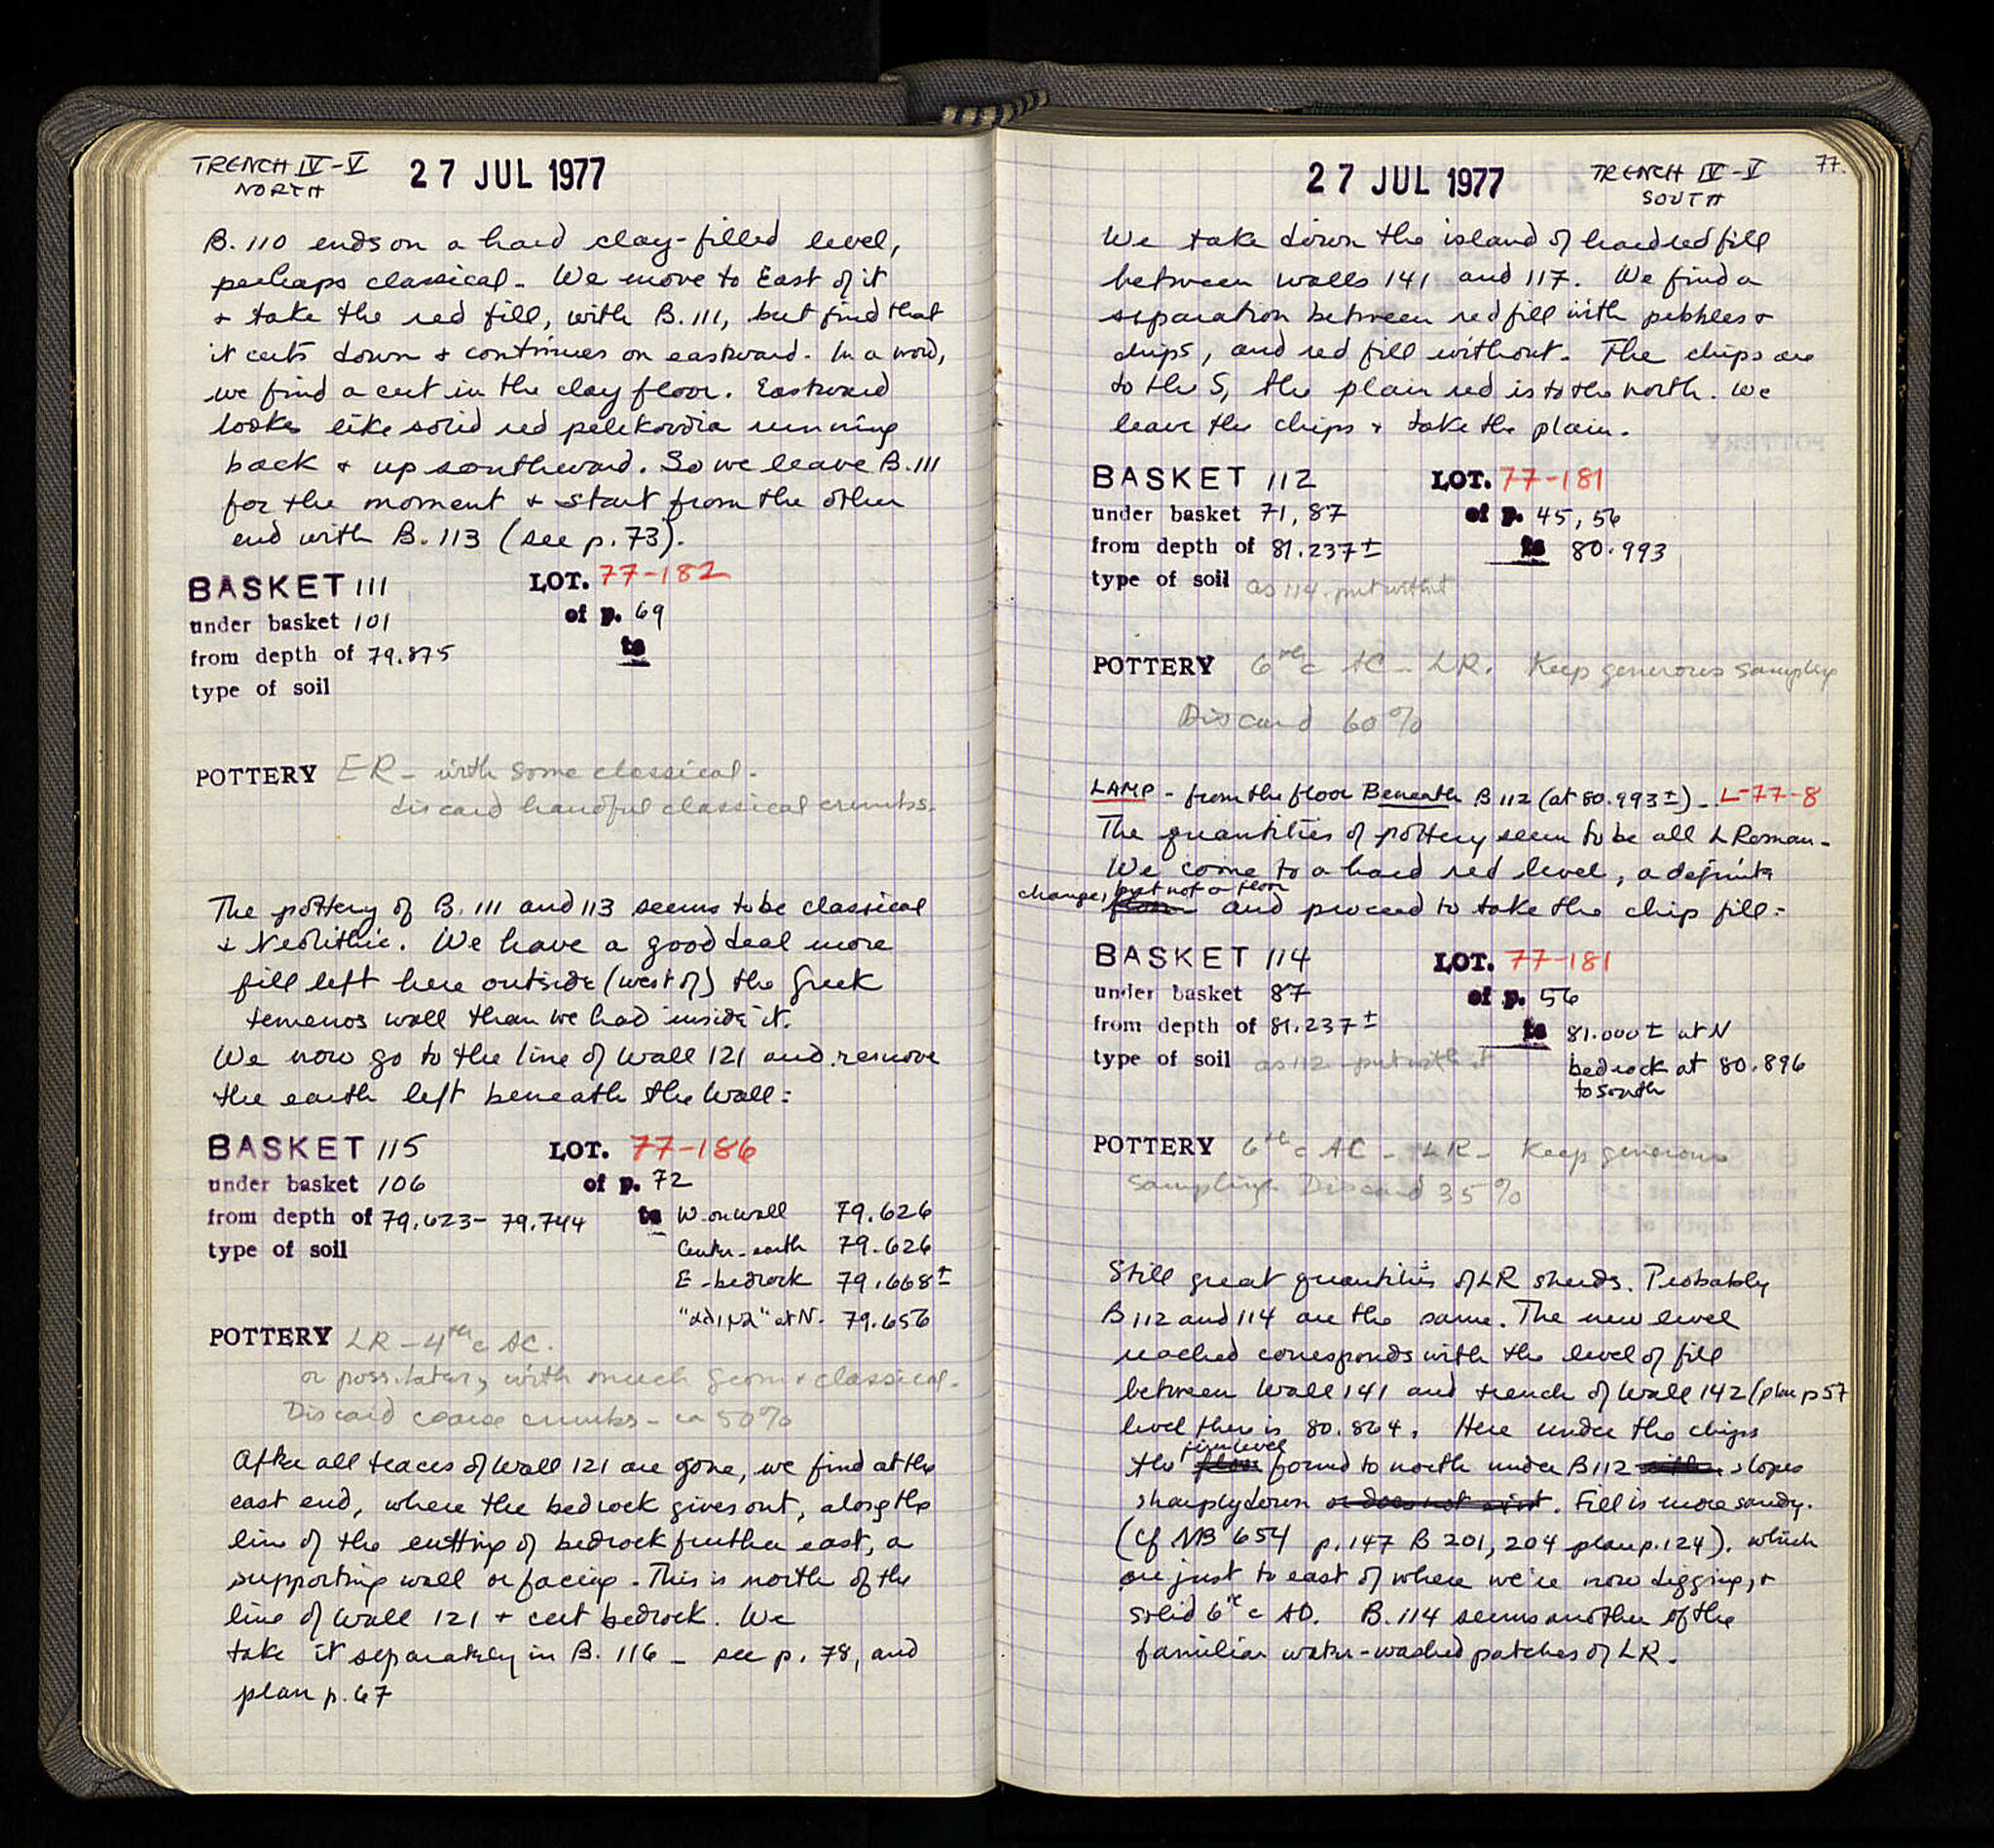 TRENCH IV-V
NORTH
27 JUL 1977
B. 110 ends on a hard clay-filled level,
perhaps classical - We move to East of it
+ take the red fill, with B. 111, but find that
it cuts down + continues on eastward. In a word,
we find a cut in the clay floor. Eastward
looks like solid red pelekoudia running
back + up southward. So we leave B. 111
for the moment + start from the other
end with B. 113 (see p. 73).
BASKET 111 LOT. 77-182
under basket 101 of p. 69
from depth of 79.875 to
type of soil
POTTERY ER - with some classical -
discard handful classical crumbs.
The pottery of B. 111 and 113 seems to be classical
+ Neolithic. We have a good deal more
fill left here outside (west of) the Greek
temenos wall than we had inside it.
We now go to the line of Wall 121 and remove
the earth left beneath the Wall:
BASKET 115 LOT. 77-186
under basket 106 of p. 72
from depth of 79.623 - 79.744 to W. on wall 79.626
type of soil Center - earth 79.626
E - bedrock 79.668 ±
at N. 79.656
POTTERY LR - 4th c AC.
or poss. later, with much Geom + classical -
Discard coarse crumbs - ca 50%
After all traces of Wall 121 are gone, we find at the
east end, where the bedrock gives out, along the
line of the cutting of bedrock further east, a
supporting wall or facing. This is north of the
line of Wall 121 + cut bedrock. We
take it separately in B. 116 - see p. 78, and
plan p. 67
27 JUL 1977
TRENCH IV-V
SOUTH
77.
We take down the island of hard red fill
between walls 141 and 117. We find a
separation between red fill with pebbles +
chips, and red fill without. The chips are
to the S, the plain red is to the north. We
leave the chips + take the plain.
BASKET 112 LOT. 77-181
under basket 71, 87 of p. 45, 56
from depth of 81.237 ± to 80.993
type of soil as 114. put with it
POTTERY 6th c AC - LR. Keep generous sampling
Discard 60%
LAMP - from the floor Beneath B 112 (at 80.993 ±) - L-77-8
The quantities of pottery seem to be all L Roman -
We come to a hard red level, a definite
change, but not a floor
floor and proceed to take the chip fill:
BASKET 114 LOT. 77-181
under basket 87 of p. 56
from depth of 81.237 ± to 81.000 ± at N
type of soil as 112 - put with it bedrock at 80.896
to south
POTTERY 6th c AC - LR - Keep generous
sampling. Discard 35%
Still great quantities of LR sherds. Probably
B 112 and 114 are the same. The new level
reached corresponds with the level of fill
between Wall 141 and trench of Wall 142 (plan p 57
level there is 80.864. Here under the chips
firm level
the floor found to north under B 112 slopes
sharply down or does not exist. Fill is more sandy.
(cf NB 654 p. 147 B 201, 204 plan p. 124). which
are just to east of where we're now digging, +
solid 6th c AD. B. 114 seems another of the
familiar water-washed patches of LR.